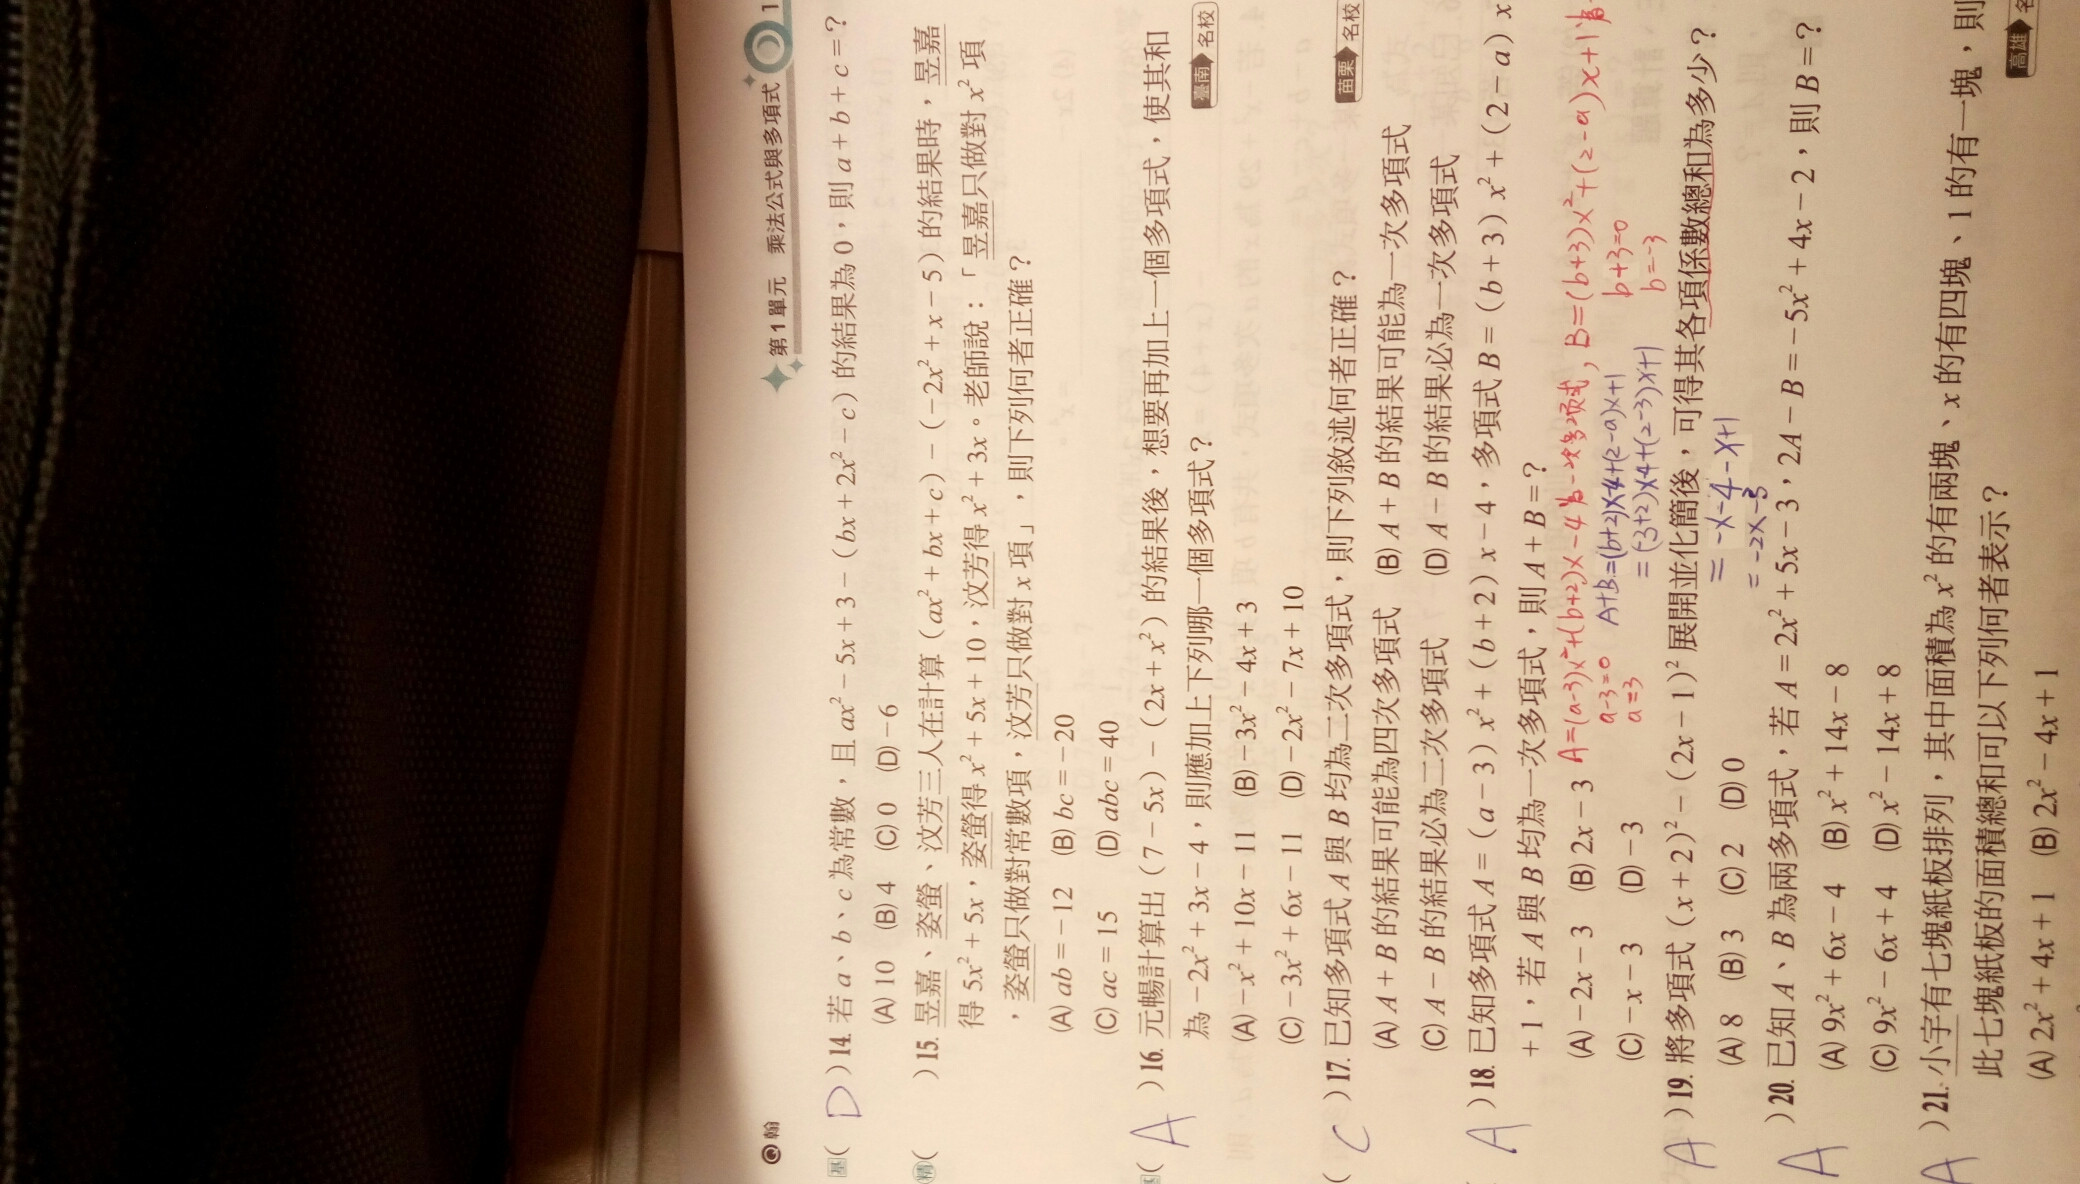 翰
第1單元 乘法公式與多項式 1
基( D )14. 若 a、b、c 為常數，且 ax² - 5x + 3 - ( bx + 2x² - c ) 的結果為 0，則 a + b + c = ?
(A) 10 (B) 4 (C) 0 (D) - 6
精( )15. 昱嘉、姿螢、汶芳三人在計算 ( ax² + bx + c ) - ( - 2x² + x - 5 ) 的結果時，昱嘉
得 5x² + 5x，姿螢得 x² + 5x + 10，汶芳得 x² + 3x。老師說：「昱嘉只做對 x² 項
，姿螢只做對常數項，汶芳只做對 x 項」，則下列何者正確？
(A) ab = - 12 (B) bc = - 20
(C) ac = 15 (D) abc = 40
( A )16. 元暢計算出 ( 7 - 5x ) - ( 2x + x² ) 的結果後，想要再加上一個多項式，使其和
為 - 2x² + 3x - 4，則應加上下列哪一個多項式？ 臺南 名校
(A) - x² + 10x - 11 (B) - 3x² - 4x + 3
(C) - 3x² + 6x - 11 (D) - 2x² - 7x + 10
( C )17. 已知多項式 A 與 B 均為二次多項式，則下列敘述何者正確？ 苗栗 名校
(A) A + B 的結果可能為四次多項式 (B) A + B 的結果可能為一次多項式
(C) A - B 的結果必為二次多項式 (D) A - B 的結果必為一次多項式
( A )18. 已知多項式 A = ( a - 3 ) x² + ( b + 2 ) x - 4，多項式 B = ( b + 3 ) x² + ( 2 - a ) x
+ 1，若 A 與 B 均為一次多項式，則 A + B = ?
(A) - 2x - 3 (B) 2x - 3
(C) - x - 3 (D) - 3
A=(a-3)x²+(b+2)x-4為一次多項式，B=(b+3)x²+(2-a)x+1為
a-3=0
a=3
b+3=0
b=-3
A+B=(b+2)x-4+(2-a)x+1
=(-3+2)x-4+(2-3)x+1
= -x-4-x+1
= -2x-3
( A )19. 將多項式 ( x + 2 )² - ( 2x - 1 )² 展開並化簡後，可得其各項係數總和為多少？
(A) 8 (B) 3 (C) 2 (D) 0
( A )20. 已知 A、B 為兩多項式，若 A = 2x² + 5x - 3，2A - B = - 5x² + 4x - 2，則 B = ?
(A) 9x² + 6x - 4 (B) x² + 14x - 8
(C) 9x² - 6x + 4 (D) x² - 14x + 8
( A )21. 小宇有七塊紙板排列，其中面積為 x² 的有兩塊、x 的有四塊、1 的有一塊，則
此七塊紙板的面積總和可以下列何者表示？ 高雄
(A) 2x² + 4x + 1 (B) 2x² - 4x + 1